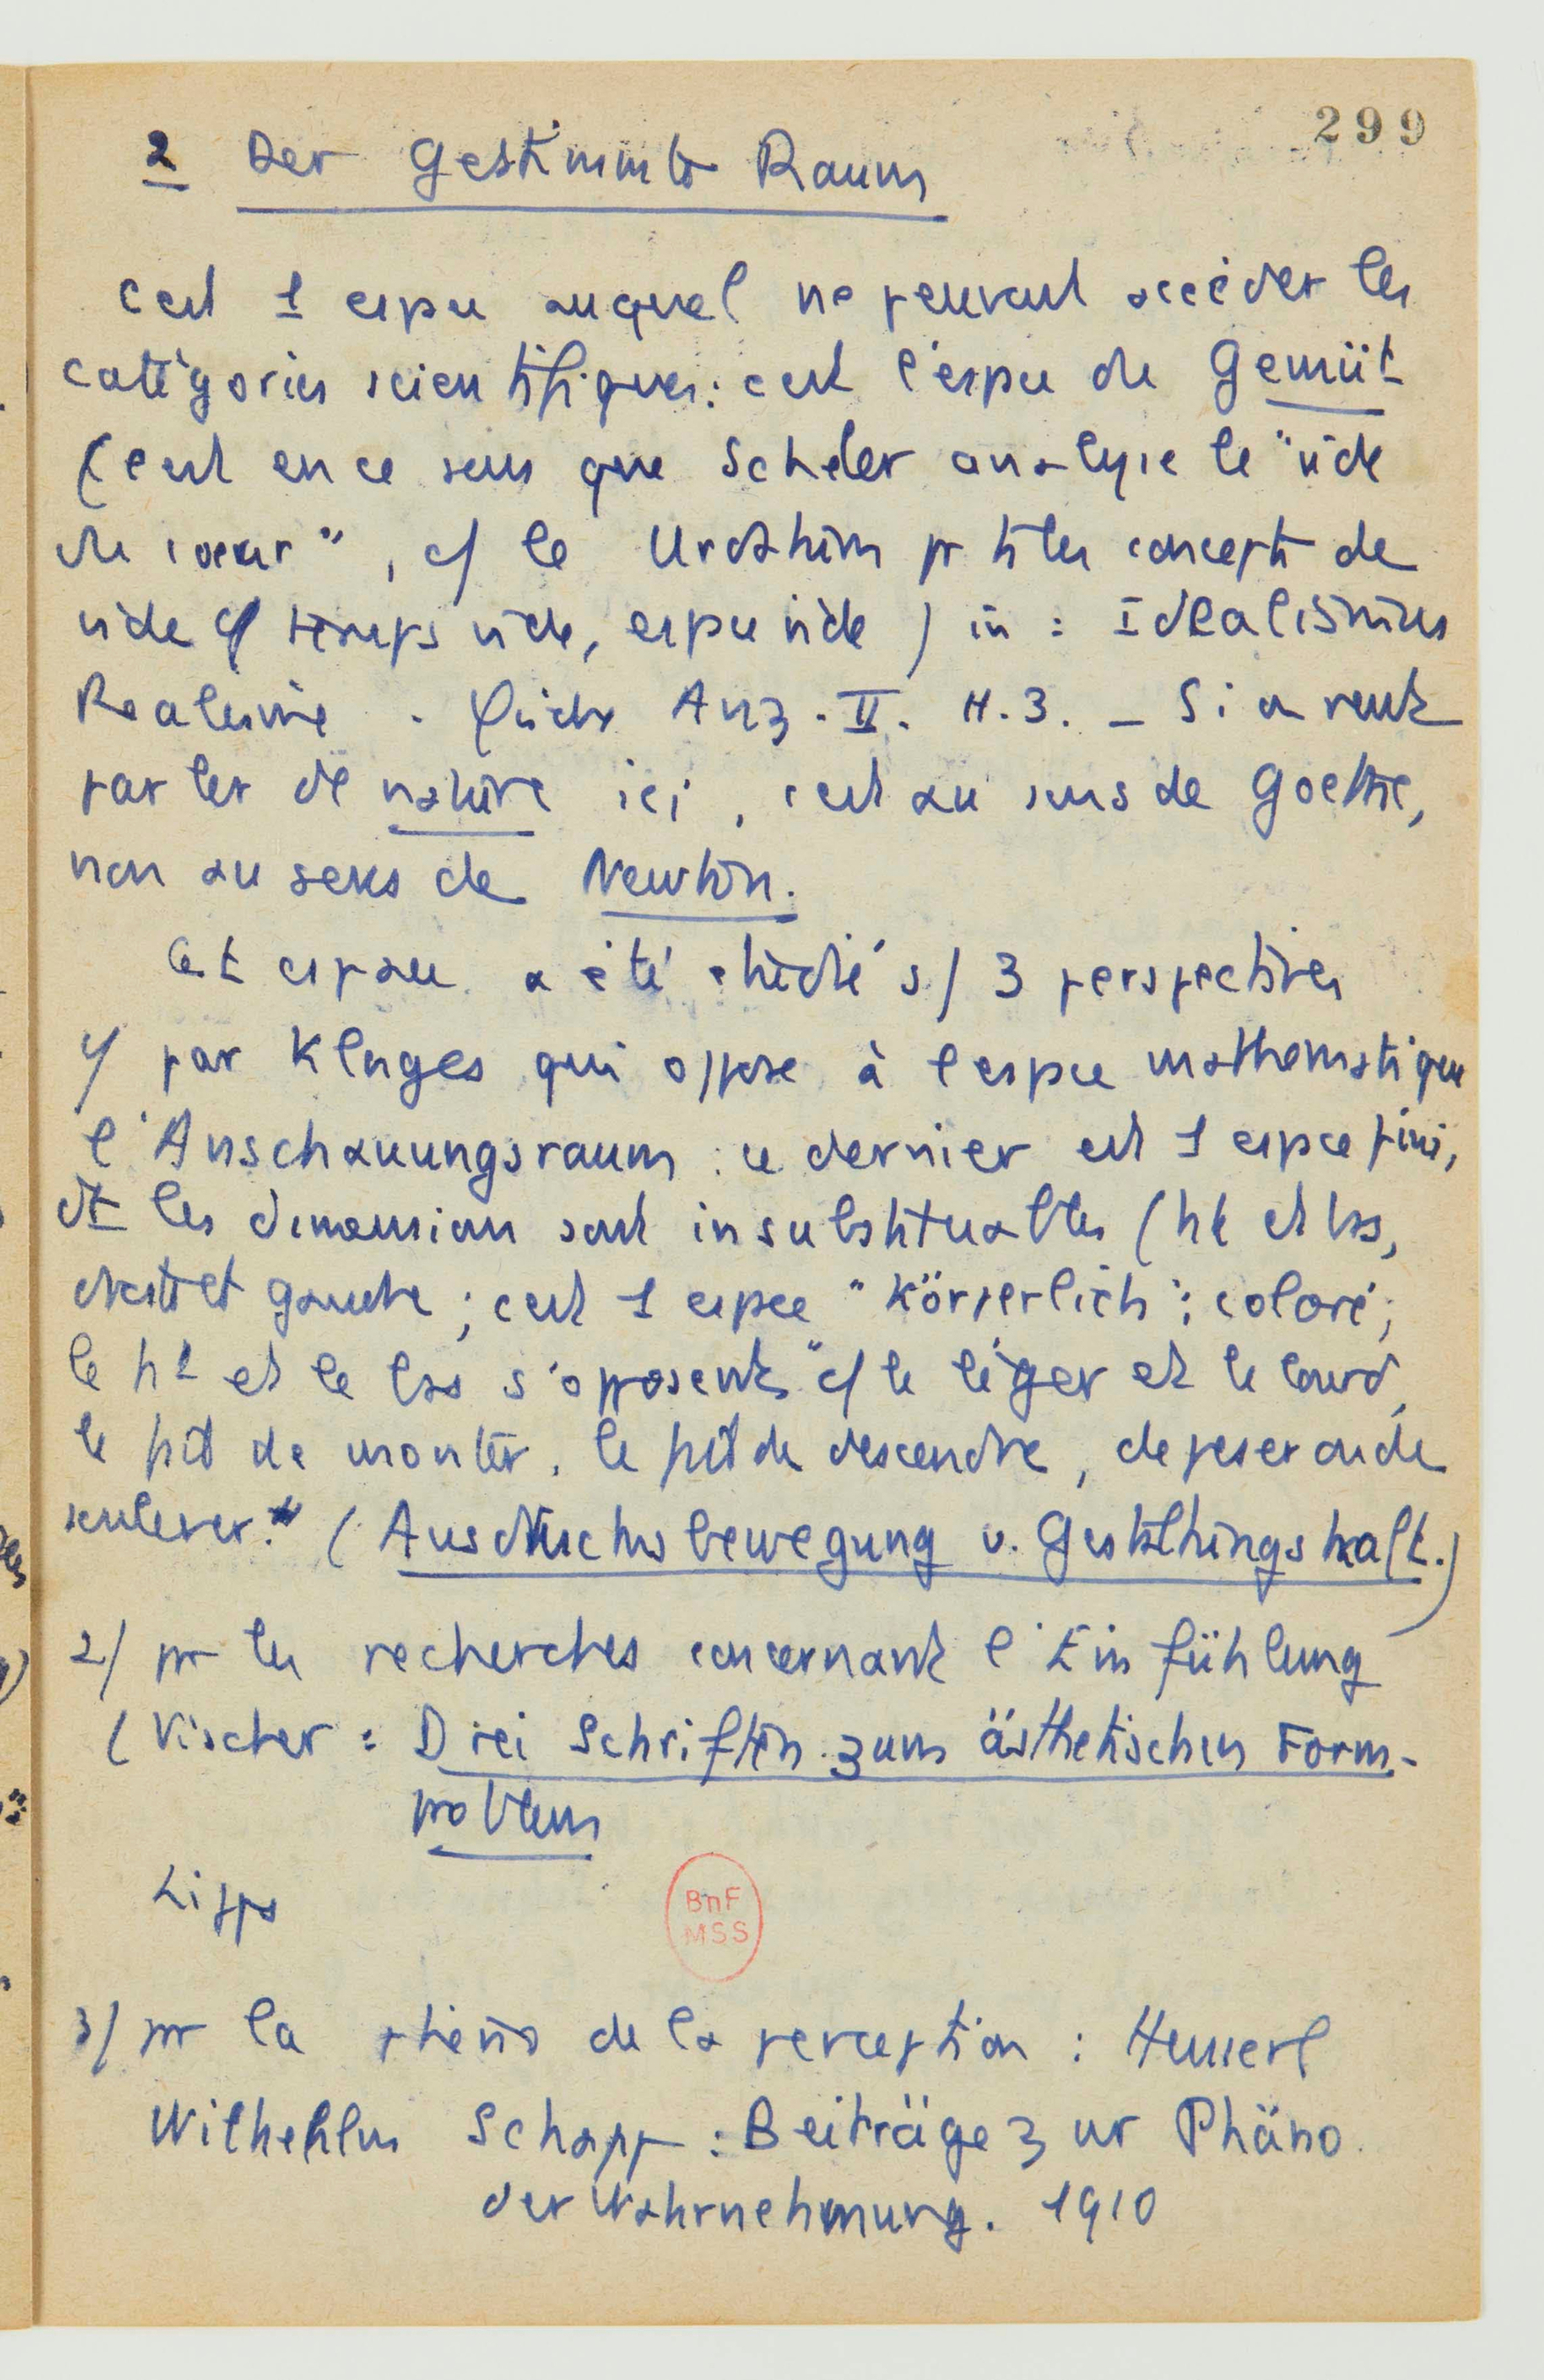 299
2 Der Gestimmte Raum
C'est 1 espace auquel ne peuvent accéder les
catégories scientifiques : c'est l'espace du Gemüt
(c'est en ce sens que Scheler analyse le "vide
du coeur", c/ le Urphänomen pr ts les concepts de
vide c/ temps vide, espace vide) in : Idealismus
Realismus . Philos Anz . II . H. 3. _ Si on veut
parler de nature ici, c'est au sens de Goethe,
non au sens de Newton.
Cet espace a été étudié s/ 3 perspectives
1/ par Klages qui oppose à l'espace mathématique
l'Anschauungsraum : ce dernier est 1 espace fini,
dt les dimensions sont insubstituables (ht et bas,
droite et gauche ; c'est 1 espace "körperlich" ; coloré ;
le ht et le bas s'opposent "c/ le léger et le lourd,
le fait de monter, le fait de descendre, de peser ou de
soulever." (Ausdrucksbewegung u. Gestaltungskraft.)
2/ pr les recherches concernant l'Einfühlung
(Vischer : Drei Schriften zum ästhetischen Form-
problem
Lipps
BnF
MSS
3/ pr la phéno de la perception : Husserl
Wilhelm Schapp : Beiträge zur Phäno.
der Wahrnehmung. 1910